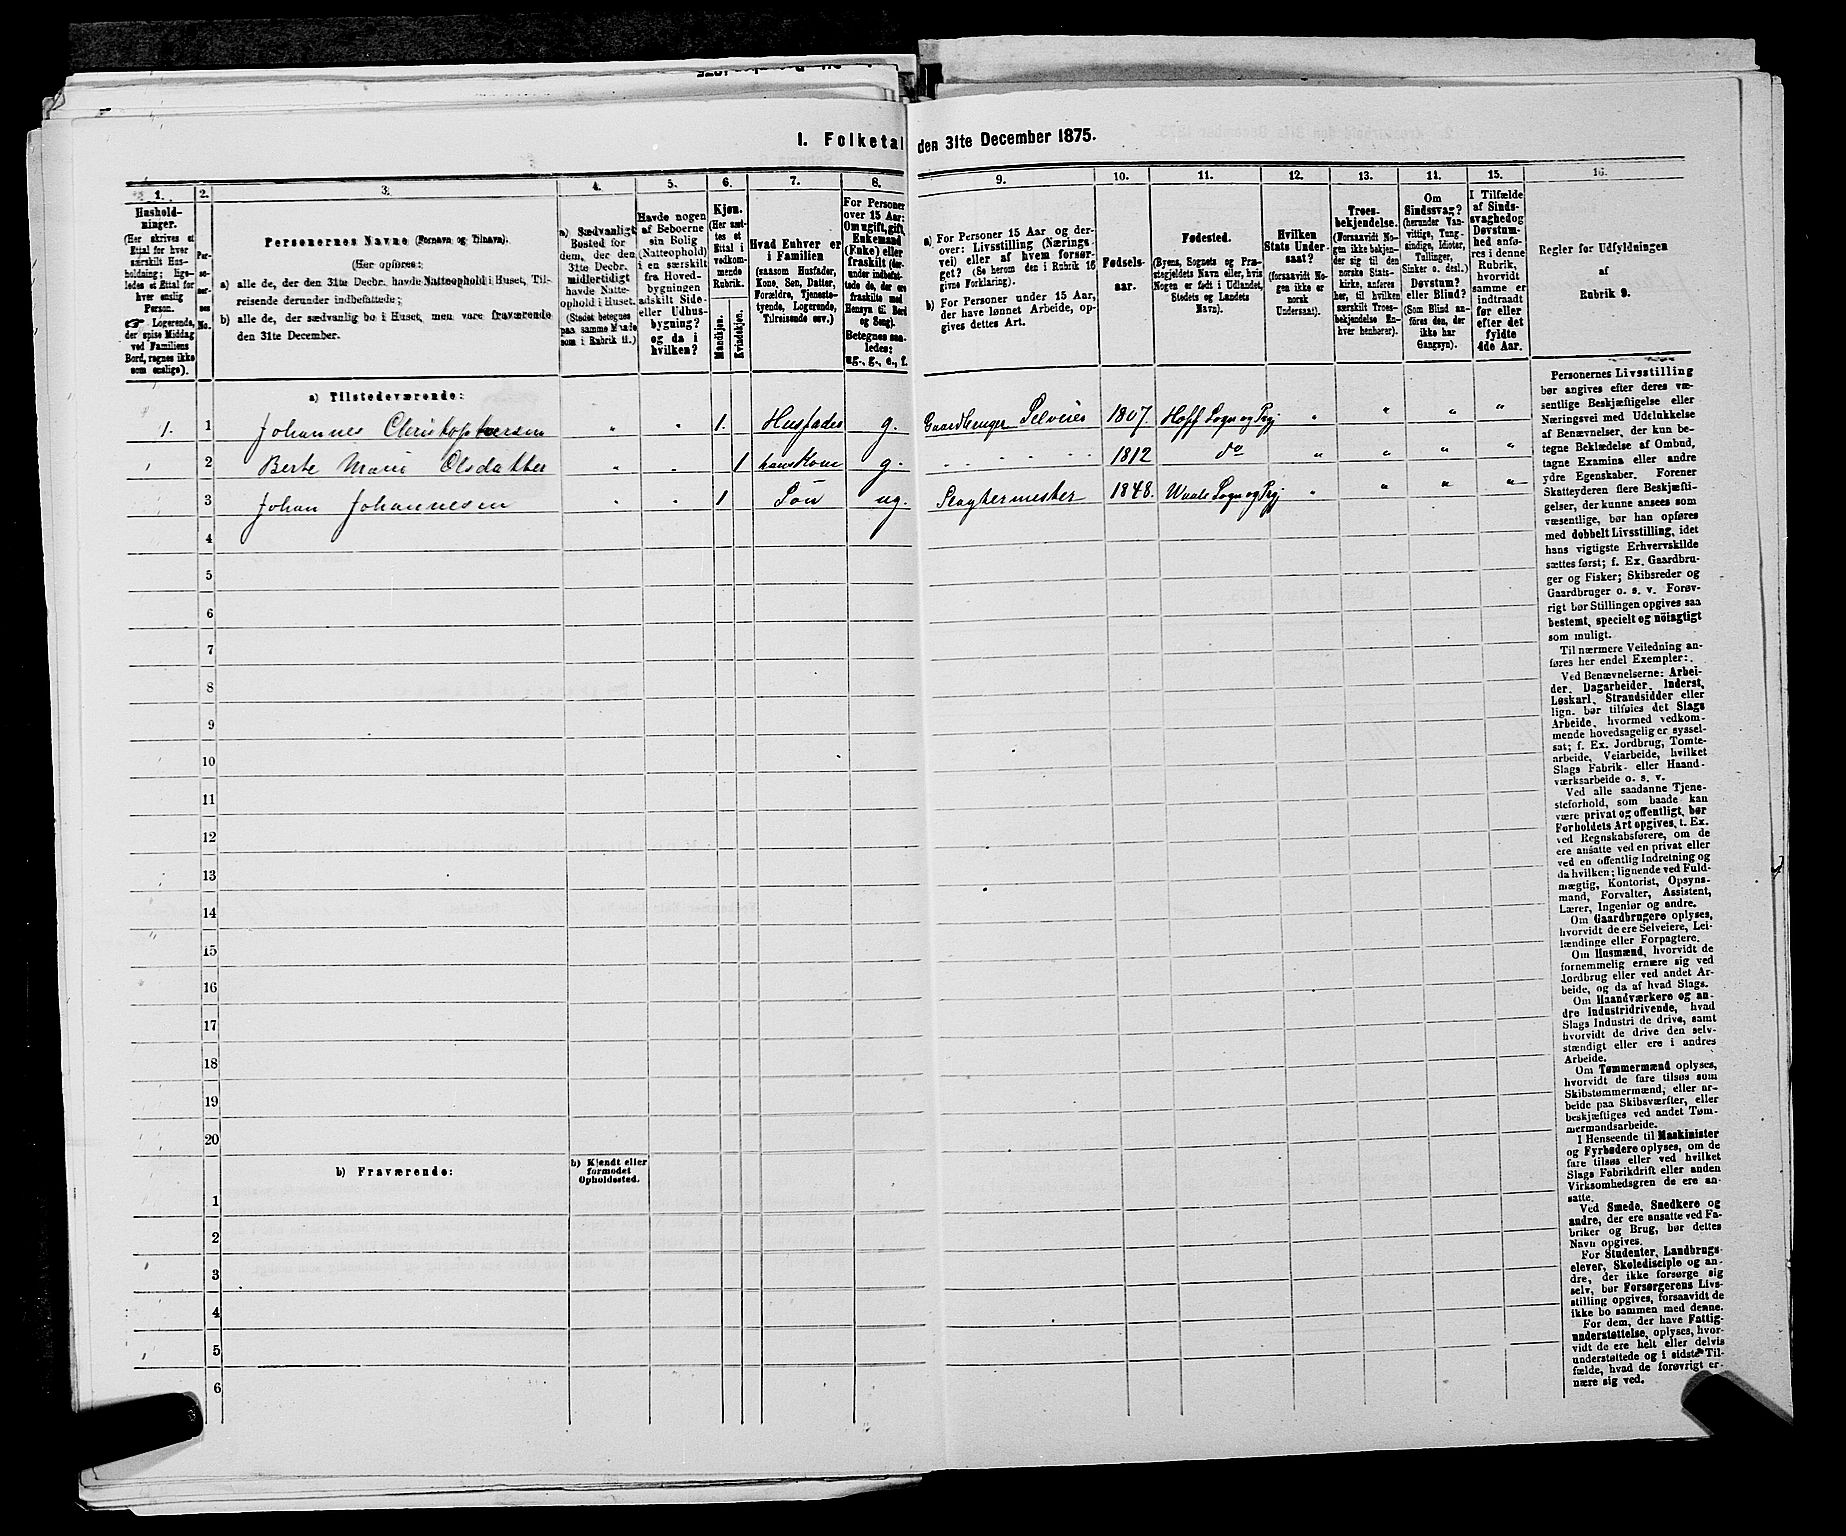 I. Folketal den 31te December 1875.
1. 2. 3. 4. 5. 6. 7. 8. 9. 10. 11. 12. 13. 14. 15. 16.
Hushold-
ninger.
(Her skrives et
Ettal for hver
særskilt Hus-
holdning; lige-
ledes et Ettal for
hver enslig
Person.
Logerende,
der spise Middag
ved Familiens
Bord, regnes ikke
som enslige).
Per-
so-
ner-
nes
No.
Personernes Navne (Fornavn og Tilnavn).
(Her opføres:
a) alle de, der den 31te Decbr. havde Natteophold i Huset, Til-
reisende derunder indbefattede;
b) alle de, der sædvanlig bo i Huset, men vare fraværende
den 31te December.
a) Sædvanligt
Bosted for
dem, der den
31te Decbr.
midlertidigt
havde Natte-
ophold i Huset.
(Stedet betegnes
paa samme Maade
som i Rubrik 11.)
Havde nogen
af Beboerne
sin Bolig
(Natteophold)
i en særskilt
fra Hoved-
bygningen
adskilt Side-
eller Udhus-
bygning?
og da i
hvilken?
Kjøn.
(Her sæt-
tes et
Ettal i
vedkom-
mende
Rubrik.
Mandkjøn.
Kvindekjøn.
Hvad Enhver er
i Familien
(saasom Husfader,
Kone, Søn, Datter,
Forældre, Tjeneste-
tyende, Logerende,
Tilreisende osv.)
For Personer
over 15 Aar:
Om ugift, gift,
Enkemand
(Enke) eller
fraskilt (der-
under indbefat-
tede de, der ere
fraskilte med
Hensyn til Bord
og Seng).
Betegnes saa-
ledes:
ug., g., e., f.
a) For Personer 15 Aar og der-
over: Livsstilling (Nærings-
vei) eller af hvem forsør-
get? (Se herom den i Rubrik 16
givne Forklaring).
b) For Personer under 15 Aar,
der have lønnet Arbeide, op-
gives dettes Art.
Fødsels-
aar.
Fødested.
(Byens, Sognets og Præ-
stegjeldets Navn eller, hvis
Nogen er født i Udlandet,
Stedets og Landets
Navn).
Hvilken
Stats Under-
saat?
(forsaavidt No-
gen ikke er
norsk
Undersaat).
Troes-
bekjendelse.
(Forsaavidt No-
gen ikke bekjen-
der sig til den
norske Stats-
kirke, anføres
her, til hvilken
særskilt Troes-
bekjendelse En-
hver henhører).
Om
Sindssvag?
(herunder Van-
vittige, Tung-
sindige, Idioter,
Tullinger,
Sinker o. desl.)
Døvstum?
eller Blind?
(Som Blind an-
føres den, der
ikke har
Gangsyn).
I Tilfælde
af Sinds-
svaghed og
Døvstum-
hed anfø-
res i denne
Rubrik,
hvorvidt
samme er
indtraadt
før eller
efter det
fyldte
4de Aar.
Regler for Udfyldningen
af
Rubrik 9.
a) Tilstedeværende:
1. 1 Johannes Christophersen " " 1. Husfader g. Gaardbruger Selveier 1807. Hoff Sogn og Prgj " " " "
2 Berte Marie Olsdatter " " 1 hans Kone g. 1812 do " " " "
3 Johan Johannesen " " 1 Søn ug. Slagtermester 1848. Waale Sogn og Prgj " " " "
4
5
6
7
8
9
10
11
12
13
14
15
16
17
18
19
20
b) Fraværende:
b) Kjendt eller
formodet
Opholdssted.
1
2
3
4
5
6
Personernes Livsstilling
bør angives efter deres væ-
sentlige Beskjæftigelse eller
Næringsvei med Udelukkelse
af Benævnelser, der kun be-
tegne Beklædelse af Ombud,
tagne Examina eller andre
ydre Egenskaber. Forener
Skatteyderen flere Beskjæfti-
gelser, der kunne ansees som
væsentlige, bør han opføres
med dobbelt Livsstilling, idet
hans vigtigste Erhvervskilde
sættes først; f. Ex. Gaardbru-
ger og Fisker; Skibsreder og
Gaardbruger o. s. v. Forøv-
rigt bør Stillingen opgives saa
bestemt, specielt og nöiagtigt
som muligt.
Til nærmere Veiledning an-
føres her endel Exempler:
Ved Benævnelserne: Arbei-
der, Dagarbeider, Inderst,
Løskarl, Strandsidder eller
lign. bør tilføies det Slags
Arbeide, hvormed vedkom-
mende hovedsagelig er syssel-
sat; f. Ex. Jordbrug, Tomte-
arbeide, Veiarbeide, hvilket
Slags Fabrik- eller Haand-
værksarbeide o. s. v.
Ved alle saadanne Tjene-
steforhold, som baade kan
være privat og offentligt, bør
Forholdets Art opgives, t. Ex.
ved Regnskabsførere, om de
ere ansatte ved en privat eller
ved en offentlig Indretning og
da hvilken; lignende ved Fuld-
mægtig, Kontorist, Opsyns-
mand, Forvalter, Assistent,
Lærer, Ingeniør og andre.
Om Gaardbrugere oplyses,
hvorvidt de ere Selveiere, Lei-
lændinge eller Forpagtere.
Om Husmænd, hvorvidt de
fornemmelig ernære sig ved
Jordbrug eller ved andet Ar-
beide, og da af hvad Slags.
Om Haandværkere og an-
dre Industridrivende, hvad
Slags Industri de drive, samt
hvorvidt de drive den selv-
stændigt eller ere i andres
Arbeide.
Om Tømmermænd oplyses,
hvorvidt de fare tilsøs som
Skibstømmermænd, eller ar-
beide paa Skibsværfter, eller
beskjæftiges ved andet Tøm-
mermandsarbeide.
I Henseende til Maskinister
og Fyrbødere oplyses, om de
fare tilsøs eller ved hvilket
Slags Fabrikdrift eller anden
Virksomhedsgren de ere an-
satte.
Ved Smede, Snedkere og
andre, der ere ansatte ved Fa-
briker og Brug, bør dettes
Navn opgives.
For Studenter, Landbrugs-
elever, Skoledisciple og an-
dre, der ikke forsørge sig
selv, bør Forsørgerens Livs-
stilling opgives, forsaavidt de
ikke bo sammen med denne.
For dem, der have Fattig-
understøttelse, oplyses, hvor-
vidt de ere helt eller delvis
understøttede og i sidste Til-
fælde, hvad de forøvrigt er-
nære sig ved.